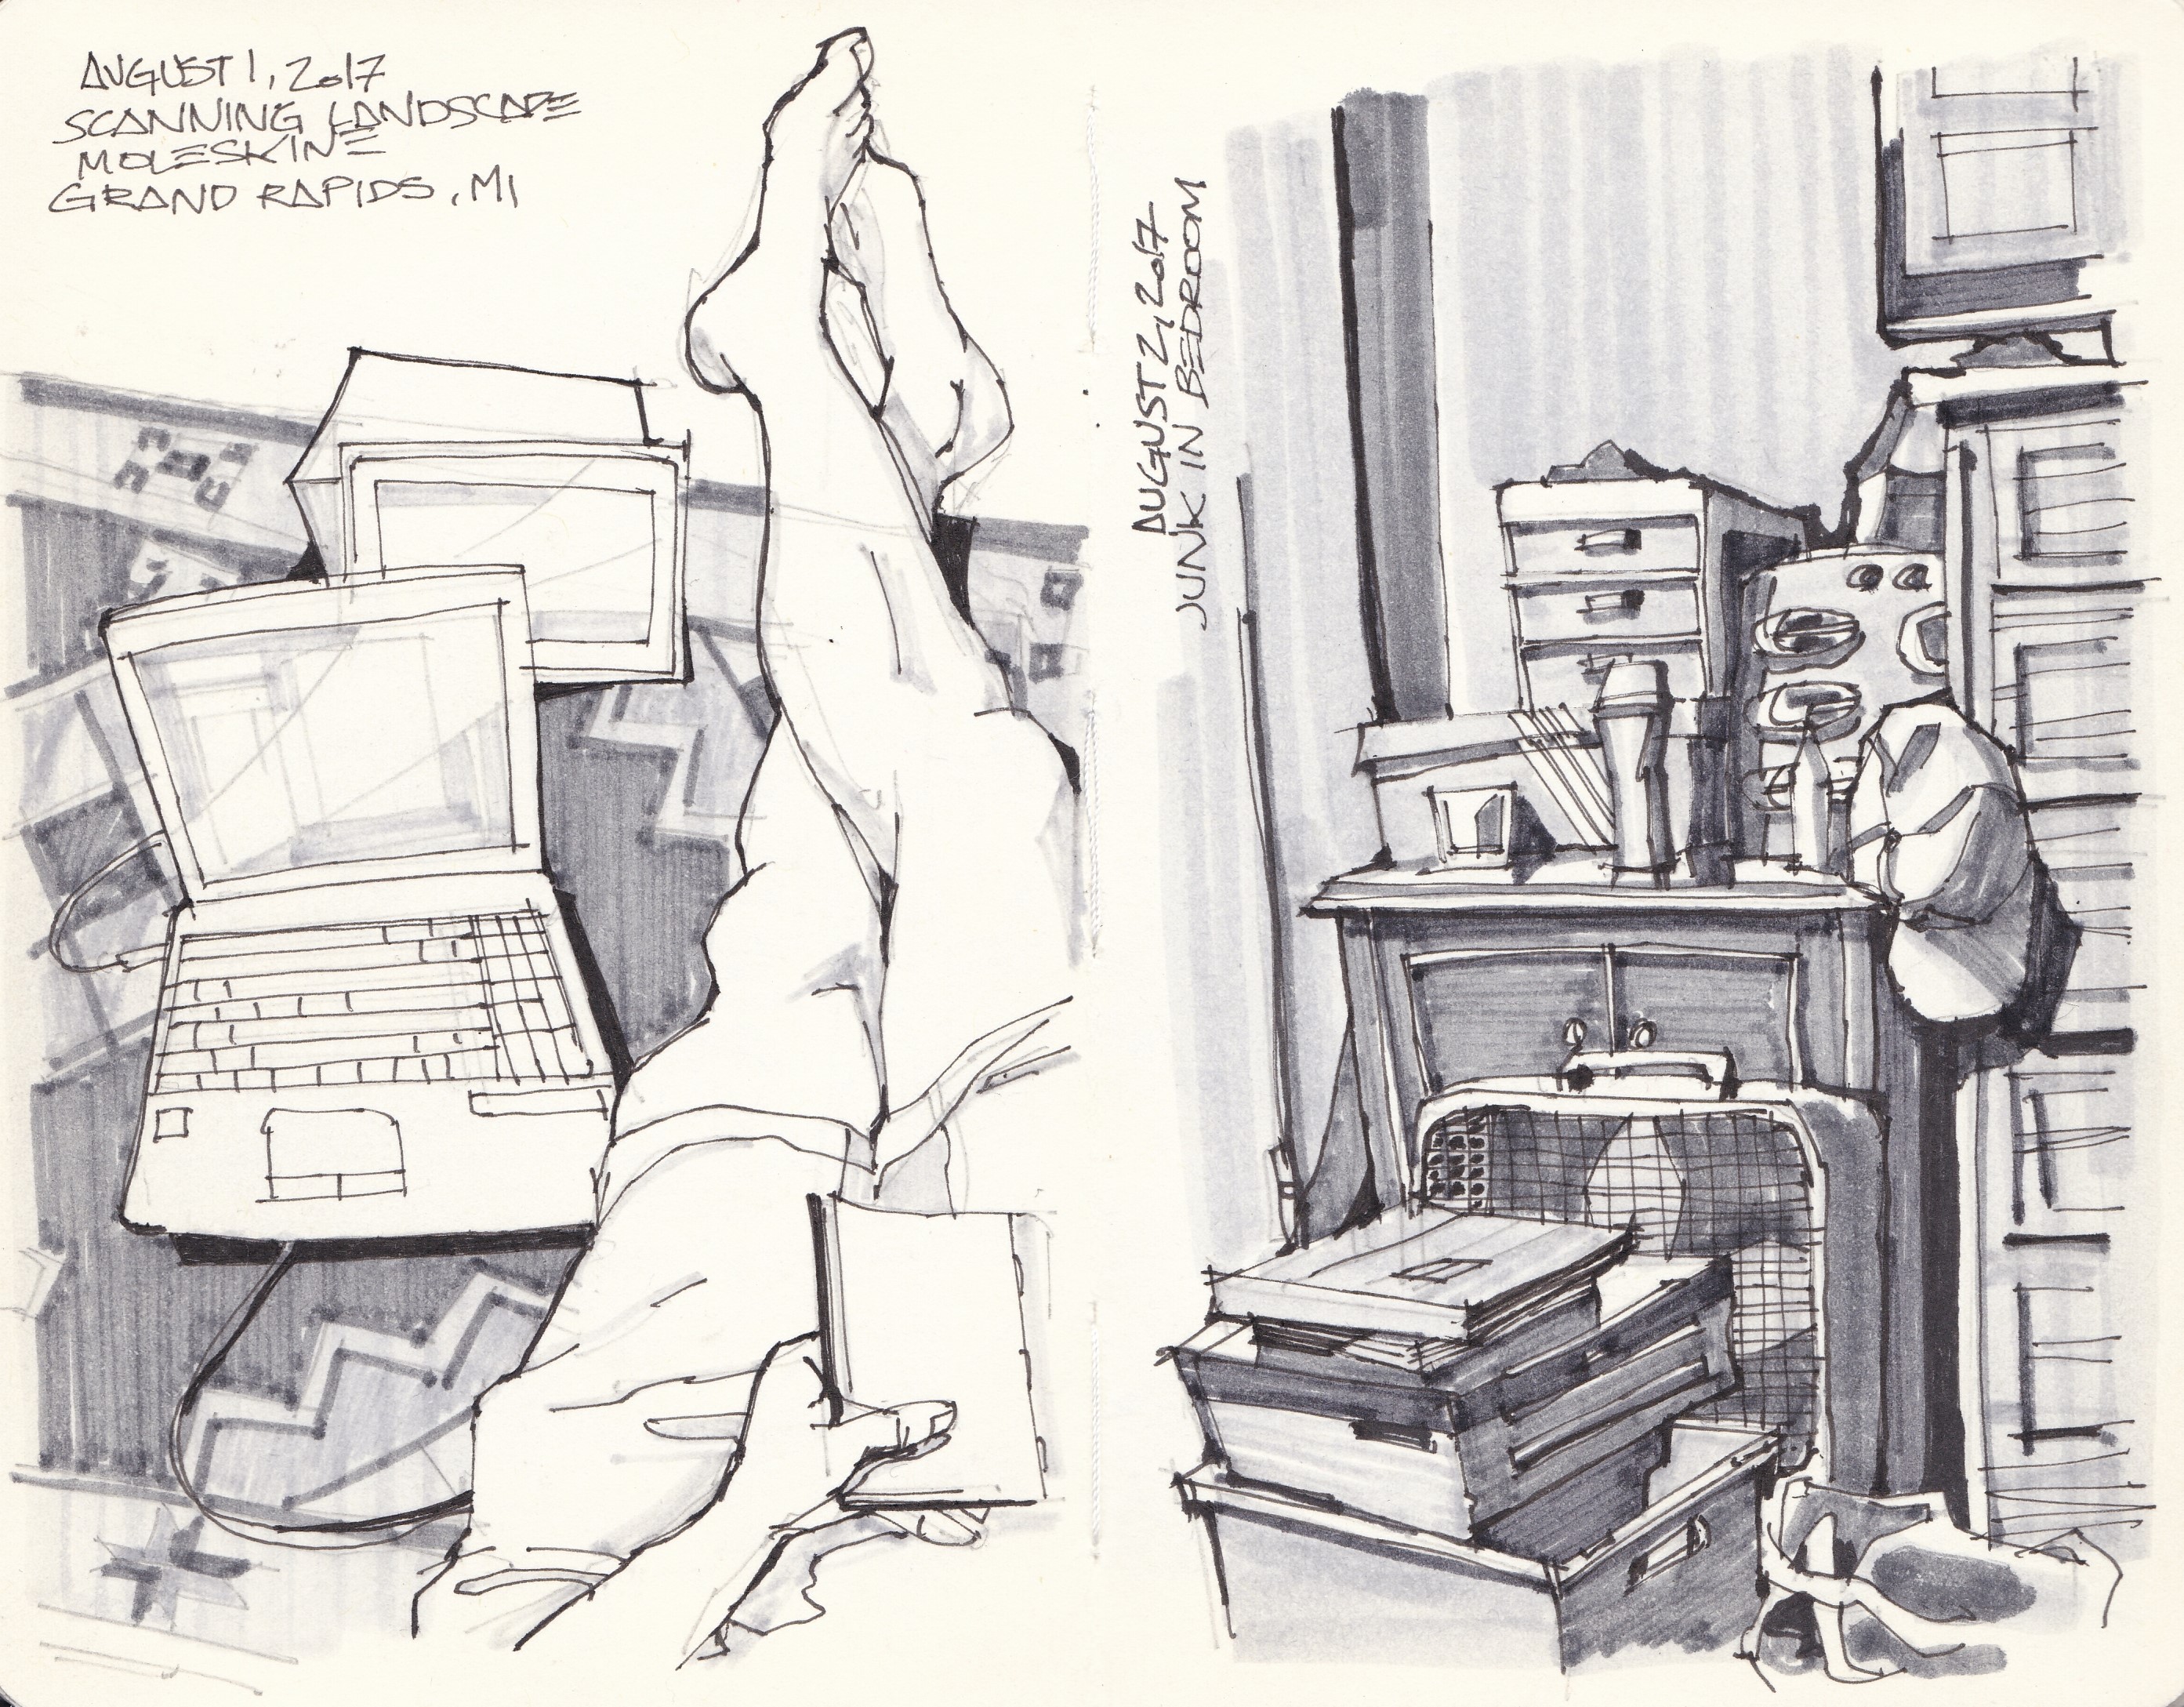 AUGUST 1, 2017
SCANNING LANDSCAPE
MOLESKINE
GRAND RAPIDS, MI
AUGUST 2, 2017
JUNK IN BEDROOM